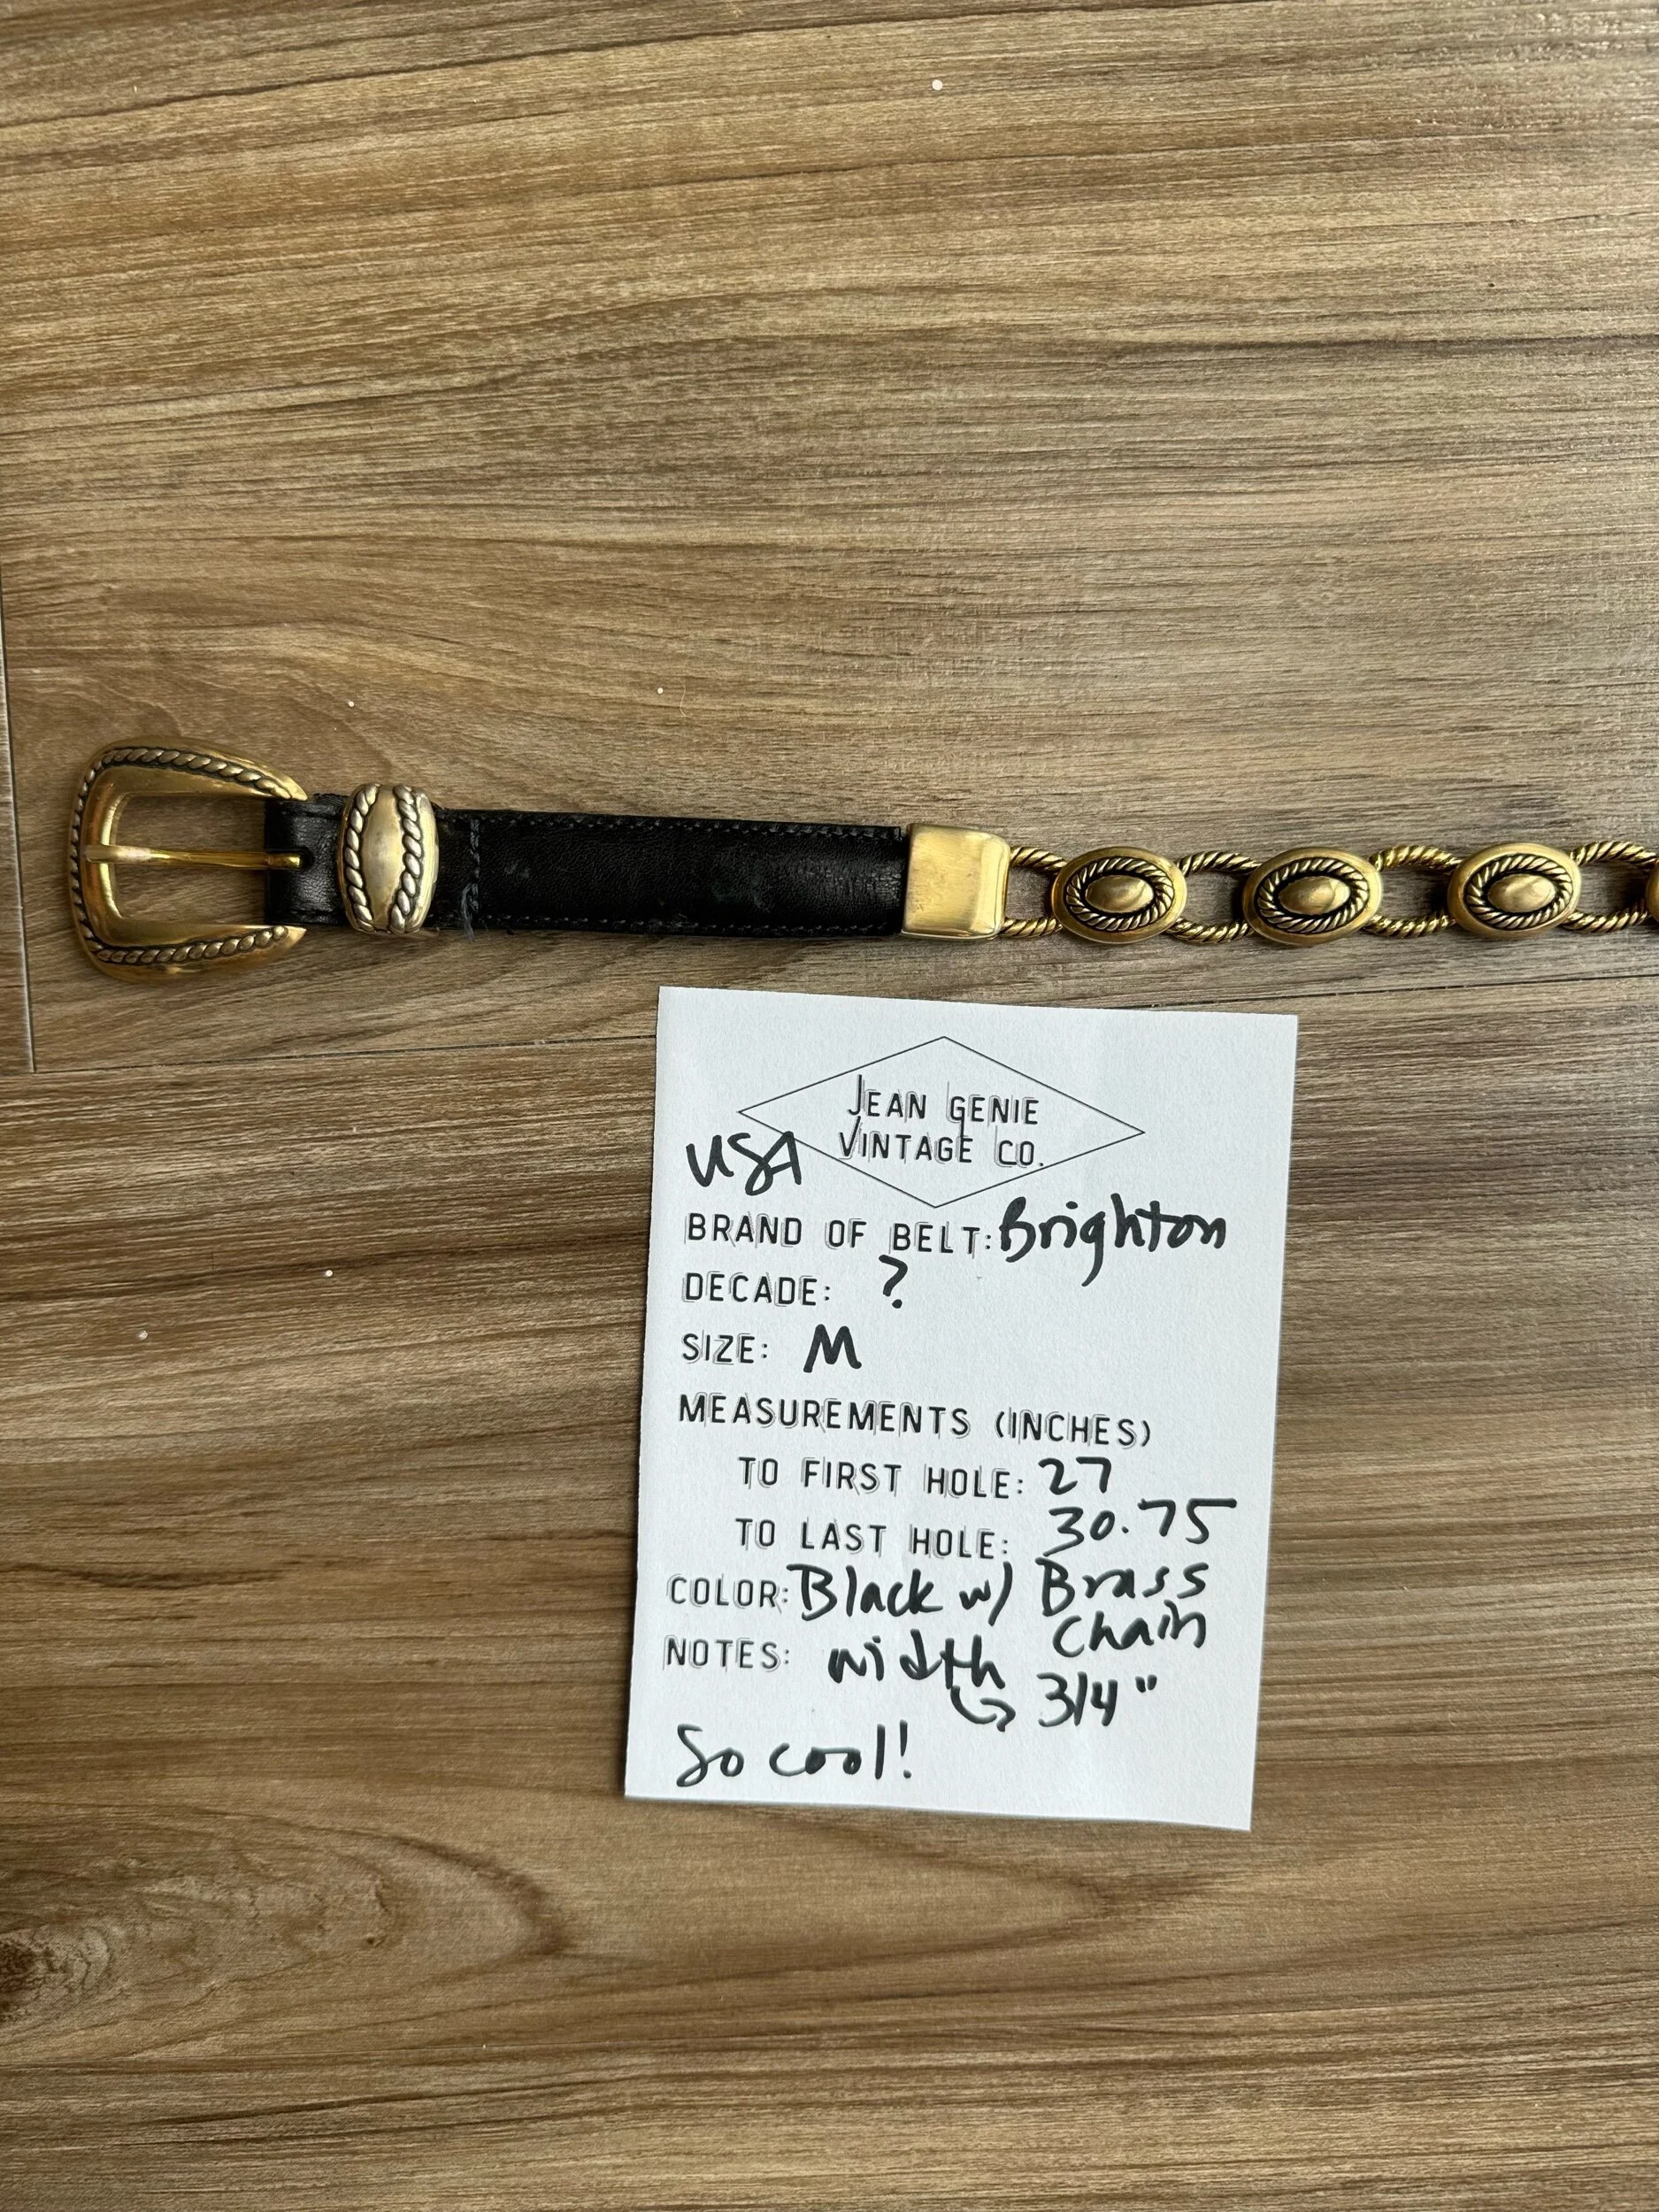 JEAN GENIE
VINTAGE CO.
USA
BRAND OF BELT: Brighton
DECADE: ?
SIZE: M
MEASUREMENTS (INCHES)
TO FIRST HOLE: 27
TO LAST HOLE: 30.75
COLOR: Black w/ Brass
Chain
NOTES: width
↳ 3/4"
So cool!